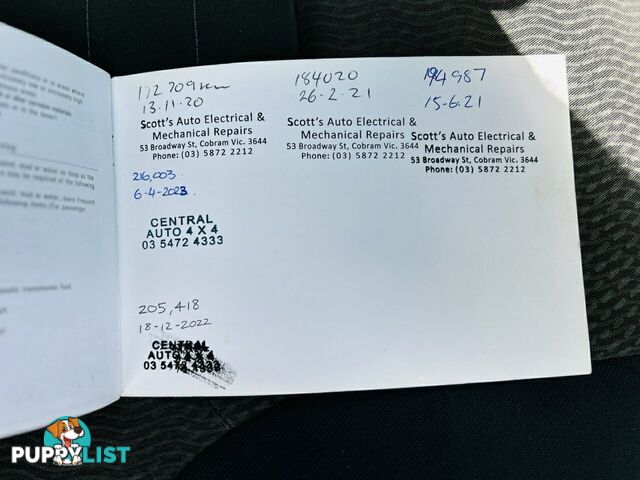 172 709 km
13.11.20
Scott's Auto Electrical &
Mechanical Repairs
53 Broadway St, Cobram Vic. 3644
Phone: (03) 5872 2212
184020
26-2-21
Scott's Auto Electrical &
Mechanical Repairs
53 Broadway St, Cobram Vic. 3644
Phone: (03) 5872 2212
194987
15-6-21
Scott's Auto Electrical &
Mechanical Repairs
53 Broadway St, Cobram Vic. 3644
Phone: (03) 5872 2212
216,003
6-4-2023
CENTRAL
AUTO 4 X 4
03 5472 4333
205,418
18-12-2022
CENTRAL
AUTO 4 X 4
03 5472 4333
PUPPYLIST